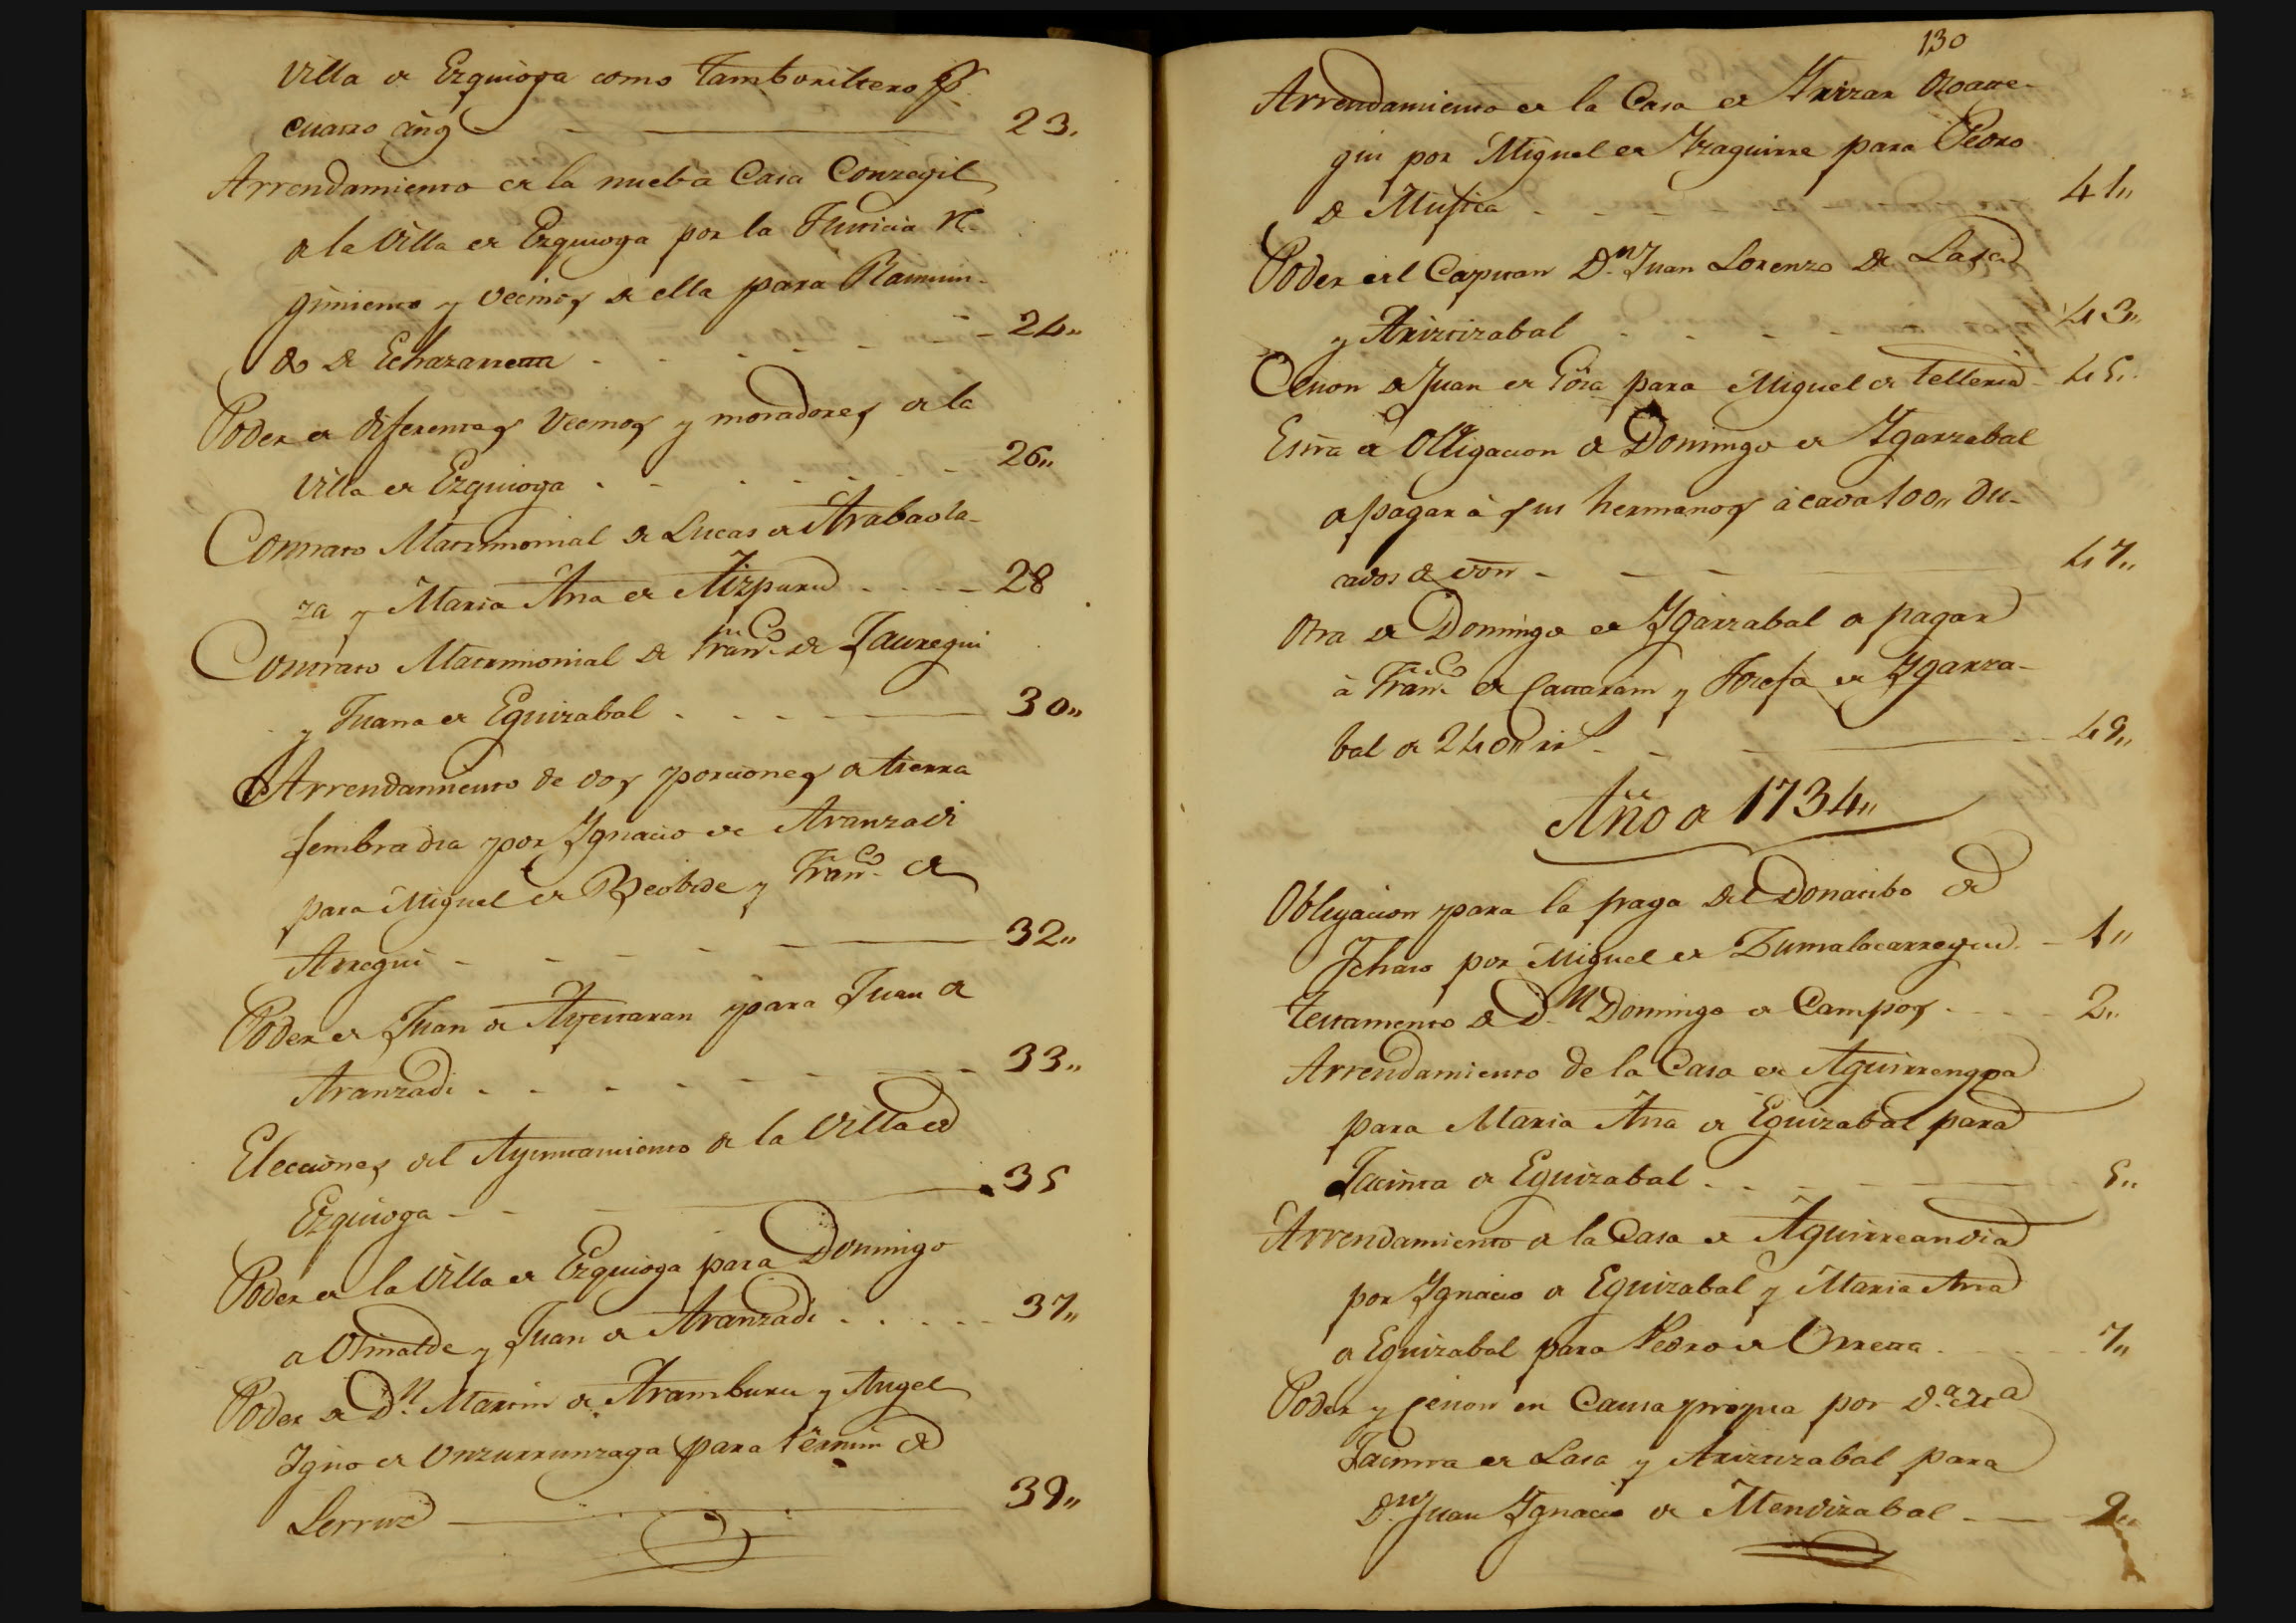 Villa de Ezquioga como tamborittero pr.
cuatro añs 23.
Arrendamiento de la nueba Casa Conzegil
de la Villa de Ezquioga por la Justicia Re-
gimiento y Vecinos de ella para Raimun-
do de Echazarreta 24
Poder de diferentes Vecinos y moradores de la
Villa de Ezquioga 26
Contrato Matrimonial de Lucas de Arabaola-
za y Maria Ana de Aizpuru 28
Contrato Matrimonial de Franco de Jauregui
y Juana de Eguizabal 30
Arrendamiento de dos porciones de tierra
sembradia por Ygnacio de Aranzadi
para Miguel de Reobide y Franco de
Arregui 32
Poder de Juan de Ayestaran para Juan de
Aranzadi 33
Elecciones del Ayuntamiento de la Villa de
Ezquioga 35
Poder de la Villa de Ezquioga para Domingo
de Olinalde y Juan de Aranzadi 37
Poder de Dn. Martin de Aramburu y Angel
Igno de Unzurrunzaga para Fermin de
Lerruz 39
130
Arrendamiento de la Casa de Yrizar
gui por Miguel de Yzaguirre para Pedro
de Mugica 41
Poder del Capitan Dn. Juan Lorenzo de Lasa
y Ariztizabal 43
Cesion de Juan de Gorra para Miguel de Telleria 45
Esra de Obligacion de Domingo de Ygarzabal
de pagar à sus hermanos à cada 100 Du-
cados de von 47
Otra de Domingo de Ygarzabal de pagar
à Franco de Cattarain y Josefa de Ygarza-
bal de 240 rrs 49
Año de 1734
Obligacion para la paga del Donatibo de
Ichaso por Miguel de Zumalacarregui 1
Testamento de Dn Domingo de Campos 2
Arrendamiento de la Casa de Aguirrengoa
para Maria Ana de Eguizabal para
Jacinta de Eguizabal 5
Arrendamiento de la Casa de Aguirreandia
por Ygnacio de Eguizabal y Maria Ana
de Eguizabal para Pedro de Urreta 7
Poder y Cesion en Causa propia por Da. Ma
Jacinta de Lasa y Ariztizabal para
Dn. Juan Ygnacio de Mendizabal 9